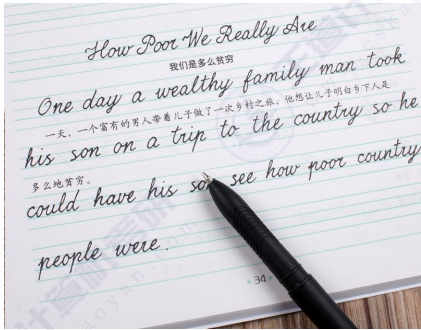 How Poor We Really Are
我们是多么贫穷
One day a wealthy family man took
一天，一个富有的男人带着儿子做了一次乡村之旅，他想让儿子明白乡下人是
his son on a trip to the country so he
多么地贫穷。
could have his son see how poor country
people were.
34